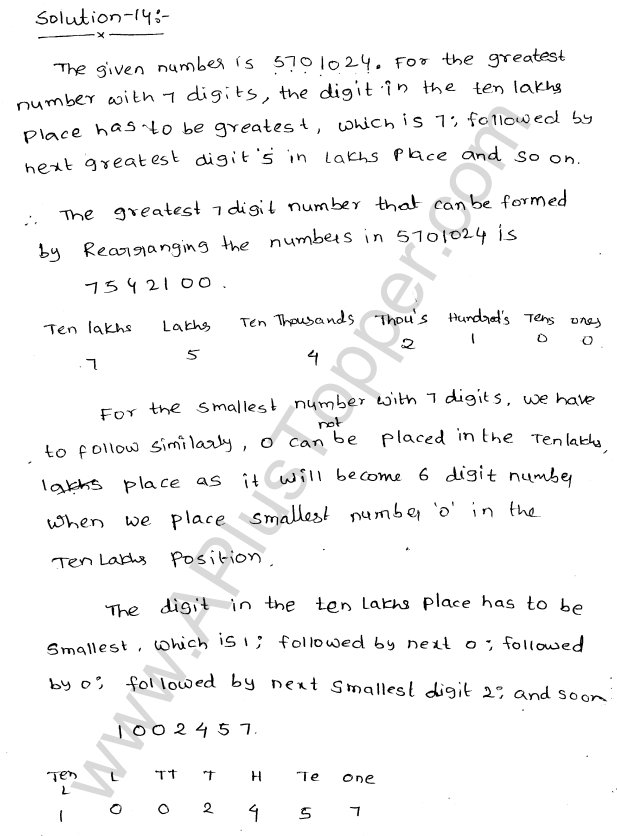 Solution-14:-
x
The given number is 5701024. For the greatest
number with 7 digits, the digit in the ten lakhs
Place has to be greatest, which is 7; followed by
next greatest digit '5 in Lakhs Place and so on.
∴ The greatest 7 digit number that can be formed
by Rearranging the numbers in 5701024 is
7542100.
Ten lakhs Lakhs Ten Thousands Thou's Hundred's Tens ones
7 5 4 2 1 0 0
For the smallest number with 7 digits, we have
to follow similarly, 0 can not be placed in the Ten lakhs,
lakhs place as it will become 6 digit number
when we place smallest number '0' in the
Ten Lakhs Position.
The digit in the ten Lakhs Place has to be
Smallest, which is 1; followed by next 0; followed
by 0; followed by next Smallest digit 2; and soon
1002457.
Ten L L TT T H Te one
1 0 0 2 4 5 7
www.APlusTopper.com